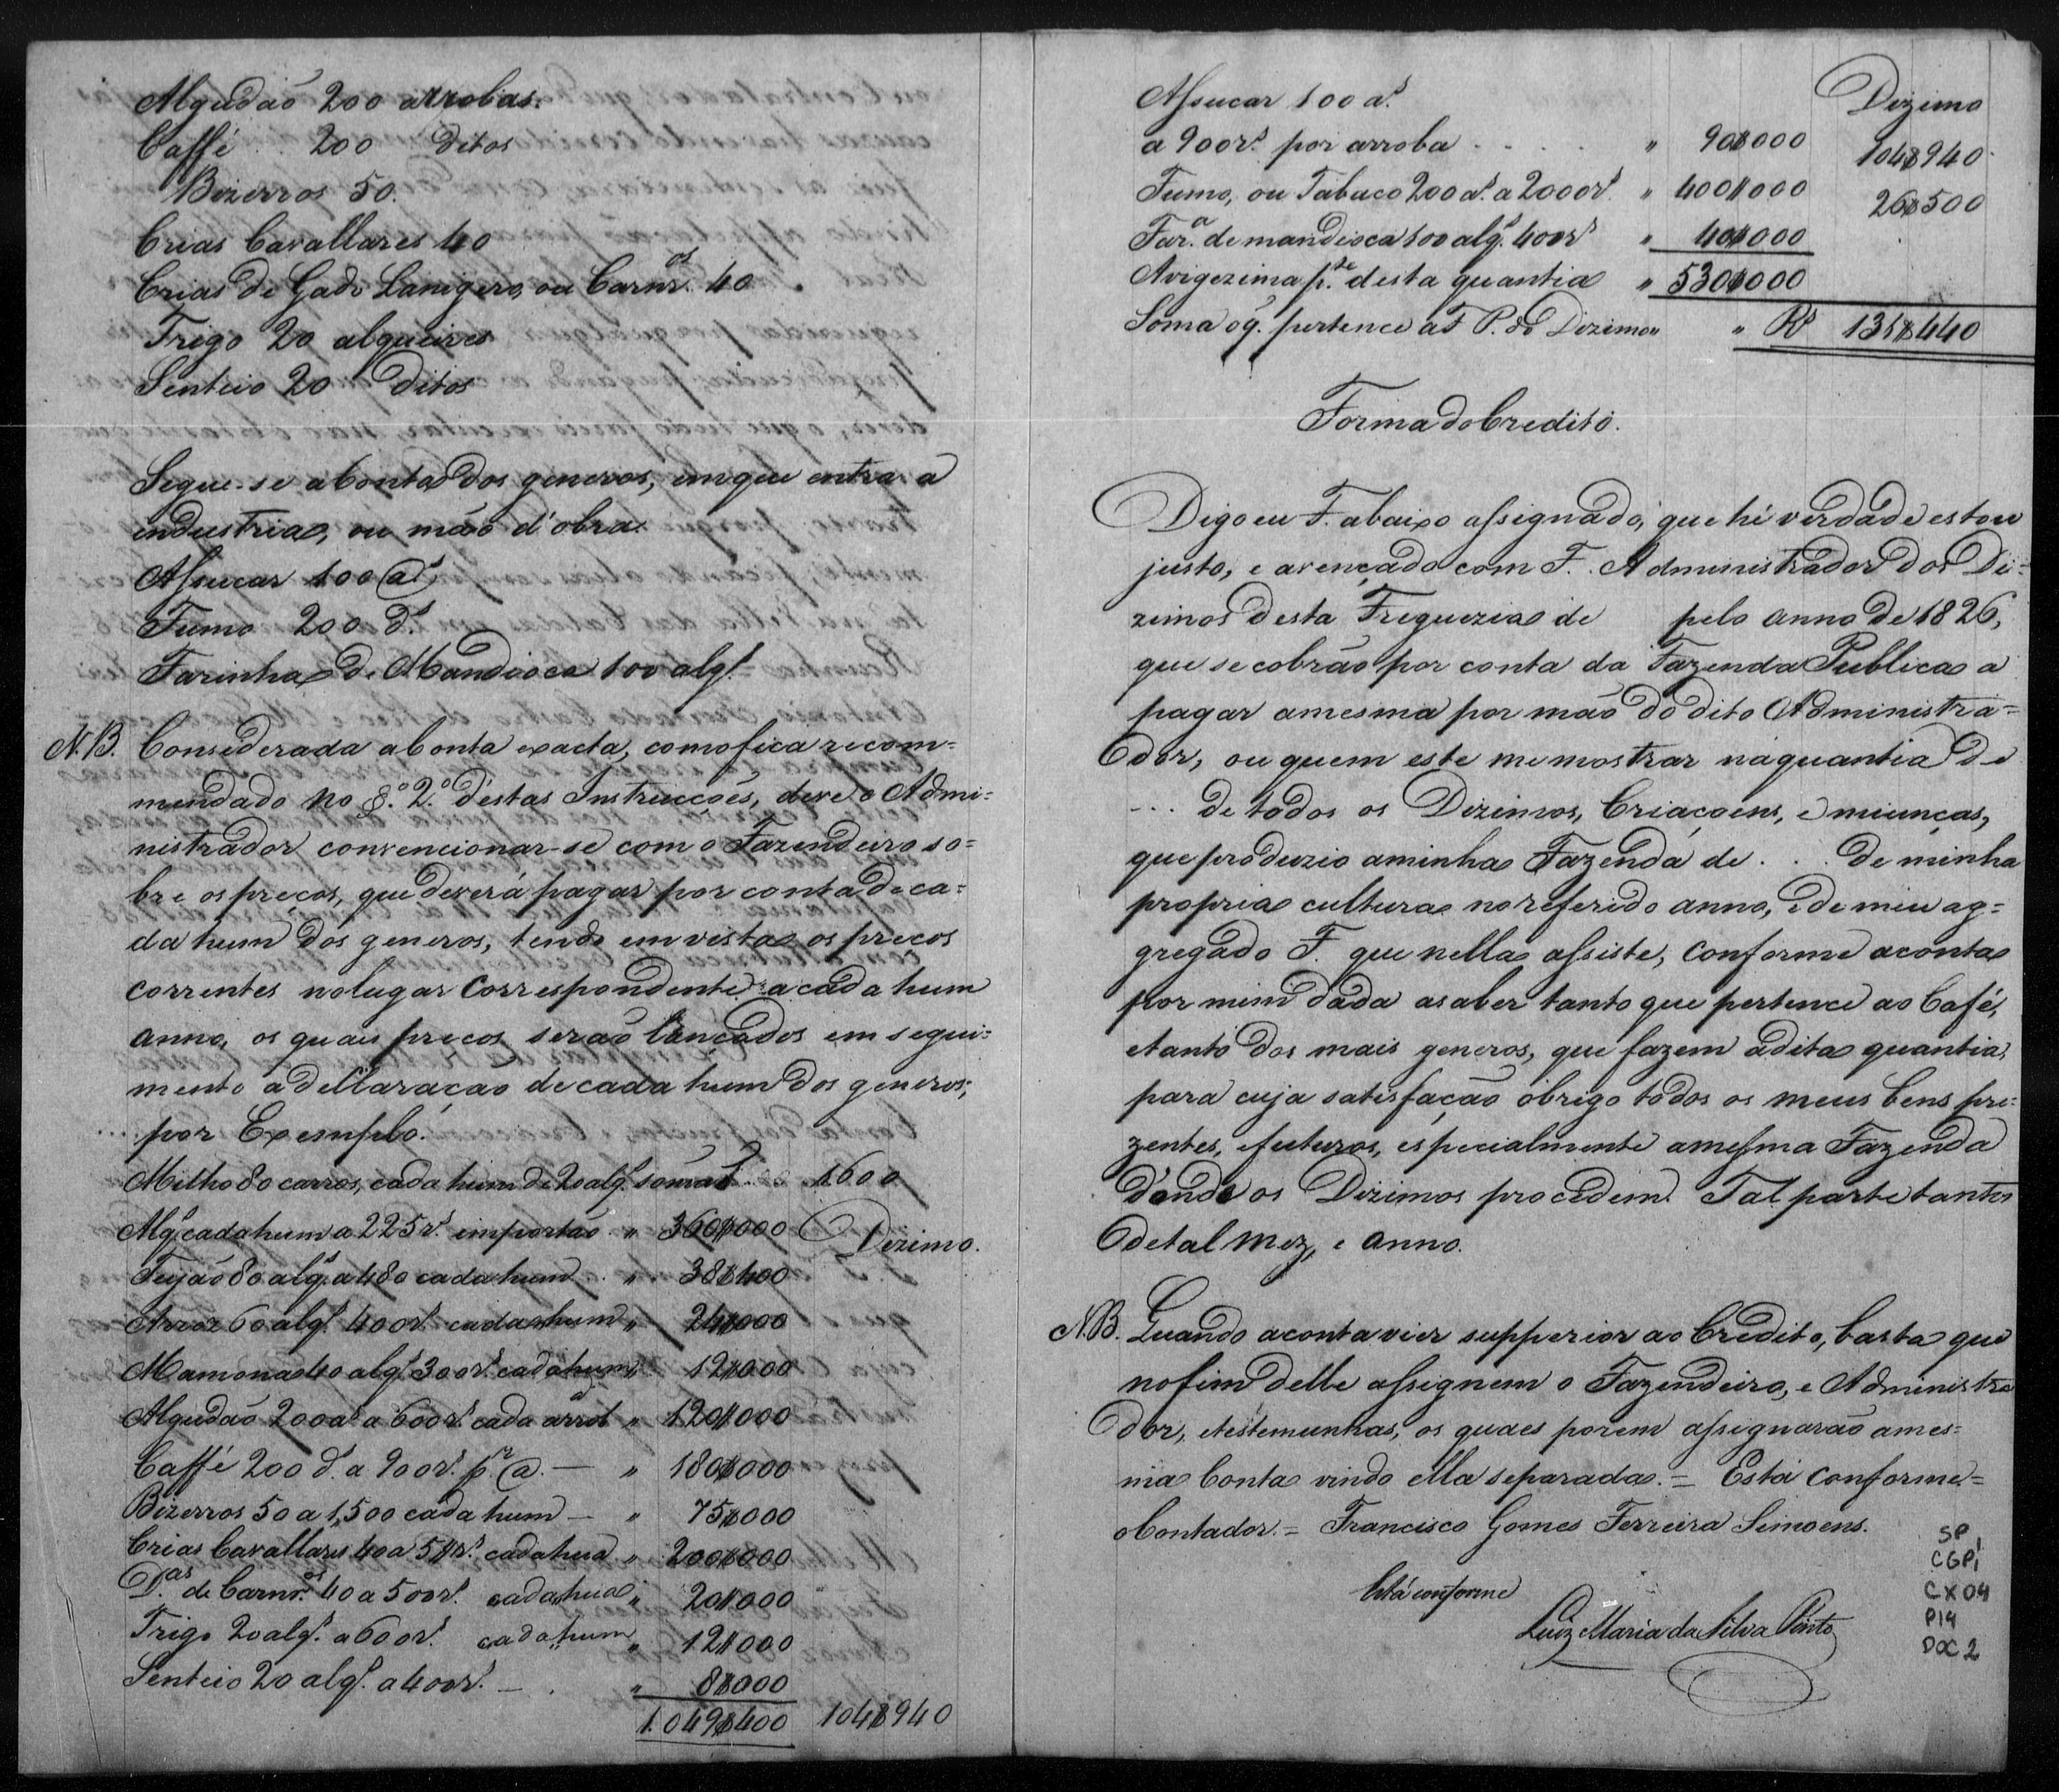 Algudaõ 200 arrobas.
Caffé .. 200 ditos
Bizerros 50.
Crias Cavallares 40
Crias de Gado Lanigero, ou Carnr.os 40
Trigo 20 alqueires
Senteio 20 ditos
Segue-se a Conta dos generos, em que entra a
industria, ou mão d'obra.
Assucar 100 @s
Fumo 200 d.s
Farinha de Mandioca 100 alq.s
N.B. Considerada a Conta exacta, como fica recom=
mendado no §.º 2.º d'estas Instrucções, deve o Admi=
nistrador convencionar-se com o Fazendeiro so=
bre os preços, que deverá pagar por conta de ca=
da hum dos generos, tendo em vista os preços
correntes no lugar correspondente a cada hum
anno, os quaes preços serão lançados em segui=
mento a declaração de cada hum dos generos;
por Exemplo.
Milho 80 carros, cada hum de 20 alq.s somaõ .. 1600
Alq.s cada hum a 225 r.s importaõ " 360$000 Dizimo.
Feijaõ 80 alq.s a 480 cada hum .. " 38$400
Arroz 60 alq.s 400 r.s cada hum " 24$000
Mamona 40 alq.s 300 r.s cada hum " 12$000
Algudaõ 200 a.s a 600 r.s cada arrob.a " 120$000
Caffé 200 d.s a 900 r.s p.r @. — " 180$000
Bizerros 50 a 1,500 cada hum — " 75$000
Crias Cavallares 40 a 5$ r.s cada hua " 200$000
D.as de Carnr.os 40 a 500 r.s cada hua " 20$000
Trigo 20 alq.s a 600 r.s cada hum " 12$000
Senteio 20 alq.s a 400 r.s — . " 8$000
1.049$400 104$940
Assucar 100 a.s Dizimo
a 900 r.s por arroba - . . . " 90$000 104$940
Fumo, ou Tabaco 200 a.s a 2000 r.s " 400$000 26$500
Far.a de mandioca 100 alq.s 400 r.s " 40$000
A vigezima p.te desta quantia " 530$000
Soma o q. pertence a F. P. do Dizimo " " R.s 131$440
Forma do Credito.
Digo eu F. abaixo assignado, que hé verdade estou
justo, e avençado com F. Administrador dos Di=
zimos desta Freguezia de pelo anno de 1826,
que se cobrão por conta da Fazenda Publica a
pagar a mesma por maõ do dito Administra=
dor, ou quem este me mostrar na quantia de
... de todos os Dizimos, Criaçoens, e miunças,
que produzio a minha Fazenda de . . . de minha
propria cultura no referido anno, e de meu ag=
gregado F. que nella assiste, conforme a conta
por mim dada a saber tanto que pertence ao Café,
e tanto dos mais generos, que fazem a dita quantia,
para cuja satisfação obrigo todos os meus bens pre=
zentes, e futuros, especialmente a mesma Fazenda
d'onde os Dizimos procedem. Tal parte tantos
de tal mez, e anno.
N.B. Quando a conta vier supperior ao Credito, basta que
no fim delle assignem o Fazendeiro, e Administra
dor, e testemunhas, os quaes porem assignarão a mes=
ma Conta vindo ella separada. = Está conforme. =
o Contador. = Francisco Gomes Ferreira Simoens.
Está conforme
Luiz Maria da Silva Pinto
SP
CGP1
CX 04
P14
DOC 2